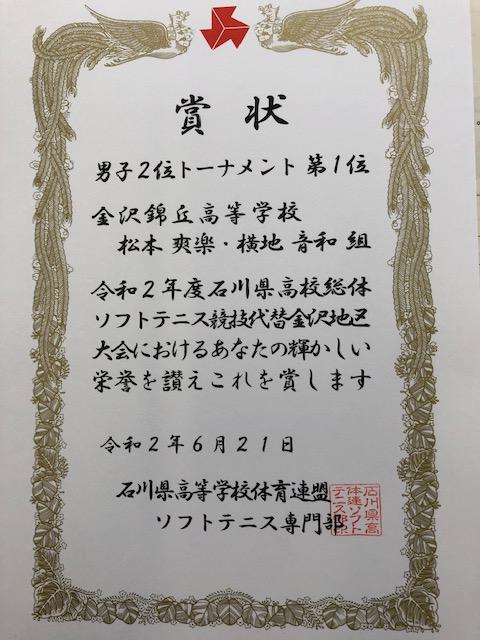 賞状
男子2位トーナメント 第1位
金沢錦丘高等学校
松本 爽楽・横地 音和 組
令和2年度石川県高校総体
ソフトテニス競技代替金沢地区
大会におけるあなたの輝かしい
栄誉を讃えこれを賞します
令和2年6月21日
石川県高等学校体育連盟
ソフトテニス専門部
石川県高
体連ソフト
テニス部